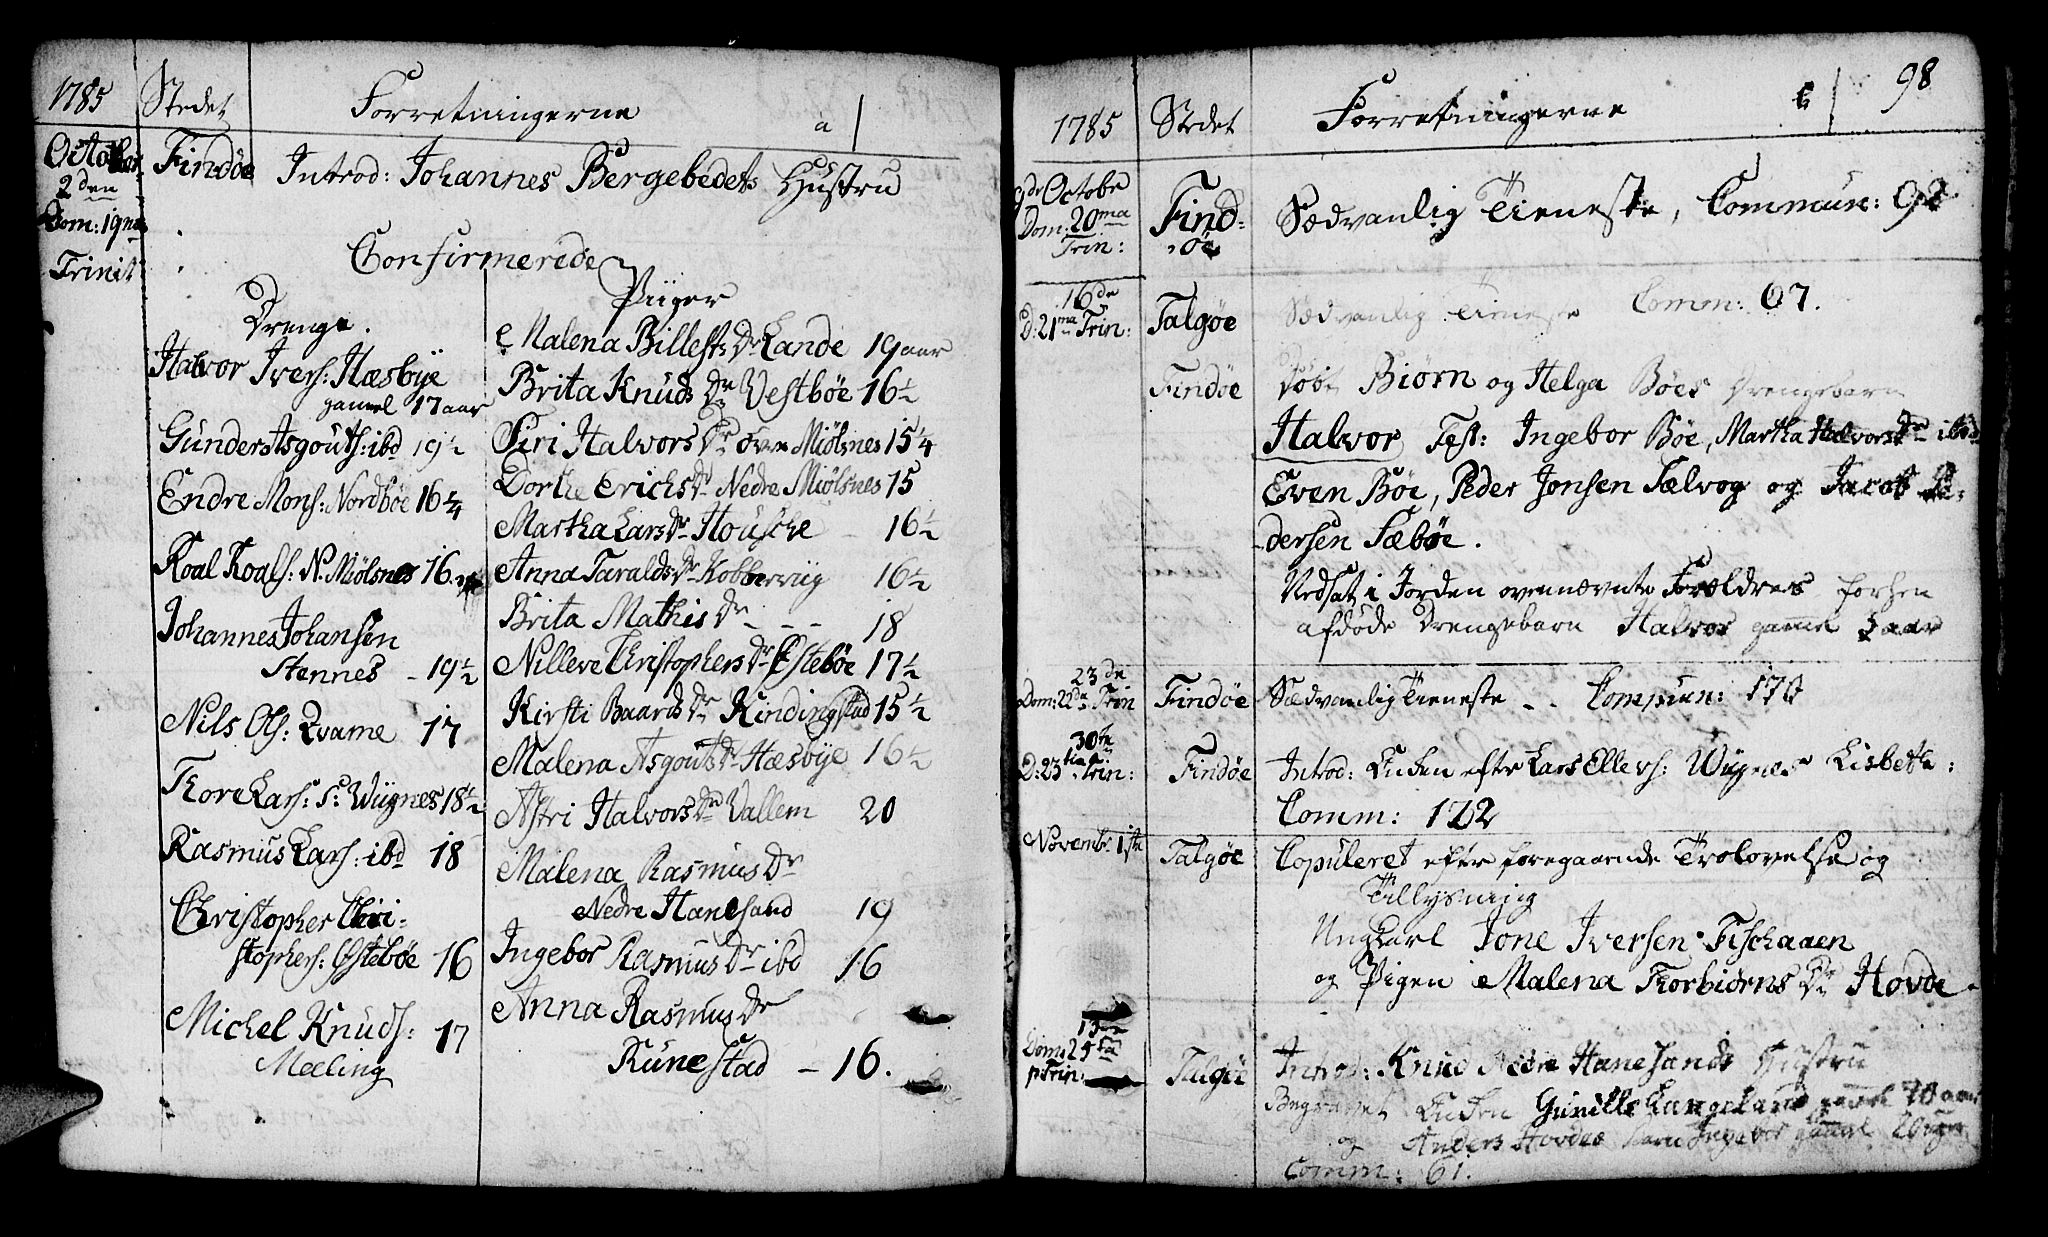 1785 Stedet Forretningerne a
October Findöe Introd: Johannes Bergebedets Hustru
2den
Dom: 19na
Trinit:
Confirmerede
Drenge. Piiger
Halvor Ivers: Hæsbÿe
gammel 17 aar
Gunder Asgouts: ibd 19½
Endre Mons: Nordbøe 16¼
Roal Roals: N. Miölsnes 16.
Johannes Johansen
Stennes - 19½
Nils Ols: Qvame 17
Thore Lars: S: Wiignes 18½
Rasmus Lars: ibd 18
Christopher Chri-
stophers: Østebøe 16
Michel Knuds: 17
Mæling
Malena Billests Dr Lande 19 aar
Brita Knuds Dr Vestbøe 16½
Siri Halvors Dr övre Miölsnes 15¼
Dorthe Erichs Dr Nedre Miölsnes 15
Martha Lars Dr Housche - 16½
Anna Taralds Dr Kobberviig 16½
Brita Mathis Dr - - - 18
Nilleve Christophers Dr Østebøe 17½
Kirsti Baards Dr Kindingstad 15½
Malena Asgouts Dr Hæsbÿe 16½
Astri Halvors Dr Vallem 20
Malena Rasmus Dr
Nedre Hanesand 19
Ingebor Rasmus Dr ibd 16
Anna Rasmus Dr
Runestad - 16.
98
1785 Stedet Forretningerne
9de Octobr Find- Sædvanlig Tieneste, Commun: 92
Dom: 20ma øe
Trin:
16de
D: 21ma Trin: Talgøe Sædvanlig Tieneste Comm: 67.
Findöe Döbt Biörn og Helga Böes Drengebarn
Halvor Test: Ingebor Böe, Martha Halvors Dr ibid
Even Böe, Peder Jonsen Sælvog og Jacob Pe-
dersen Sæböe.
Nedsat i Jorden ovennævnte Forældres forhen
afdöde Drengebarn Halvor gammel 5 aar
23de
Dom: 22de Trin Findöe Sædvanlig Tieneste - - Commun: 170
30te
D: 23tia Trin: Findöe Introd: Enken efter Lars Ellevs: Wiignes Lisbeth:
Comm: 122
Novembr 1ste Talgöe Copuleret efter foregaaende Trolovelse og
Tillysning
Ungkarl Jone Iversen Fischaaen
og Pigen Malena Torbiörns Dr Hovda
13de
Dom: 25ta
p Trin: Talgøe Introd: Knud Nedre Hanesands Hustru
Begravet Enken Gunille Langeland gammel 70 aar
og Anders Hovdes barn Ingebor gammel 20 uger
Comm: 61.